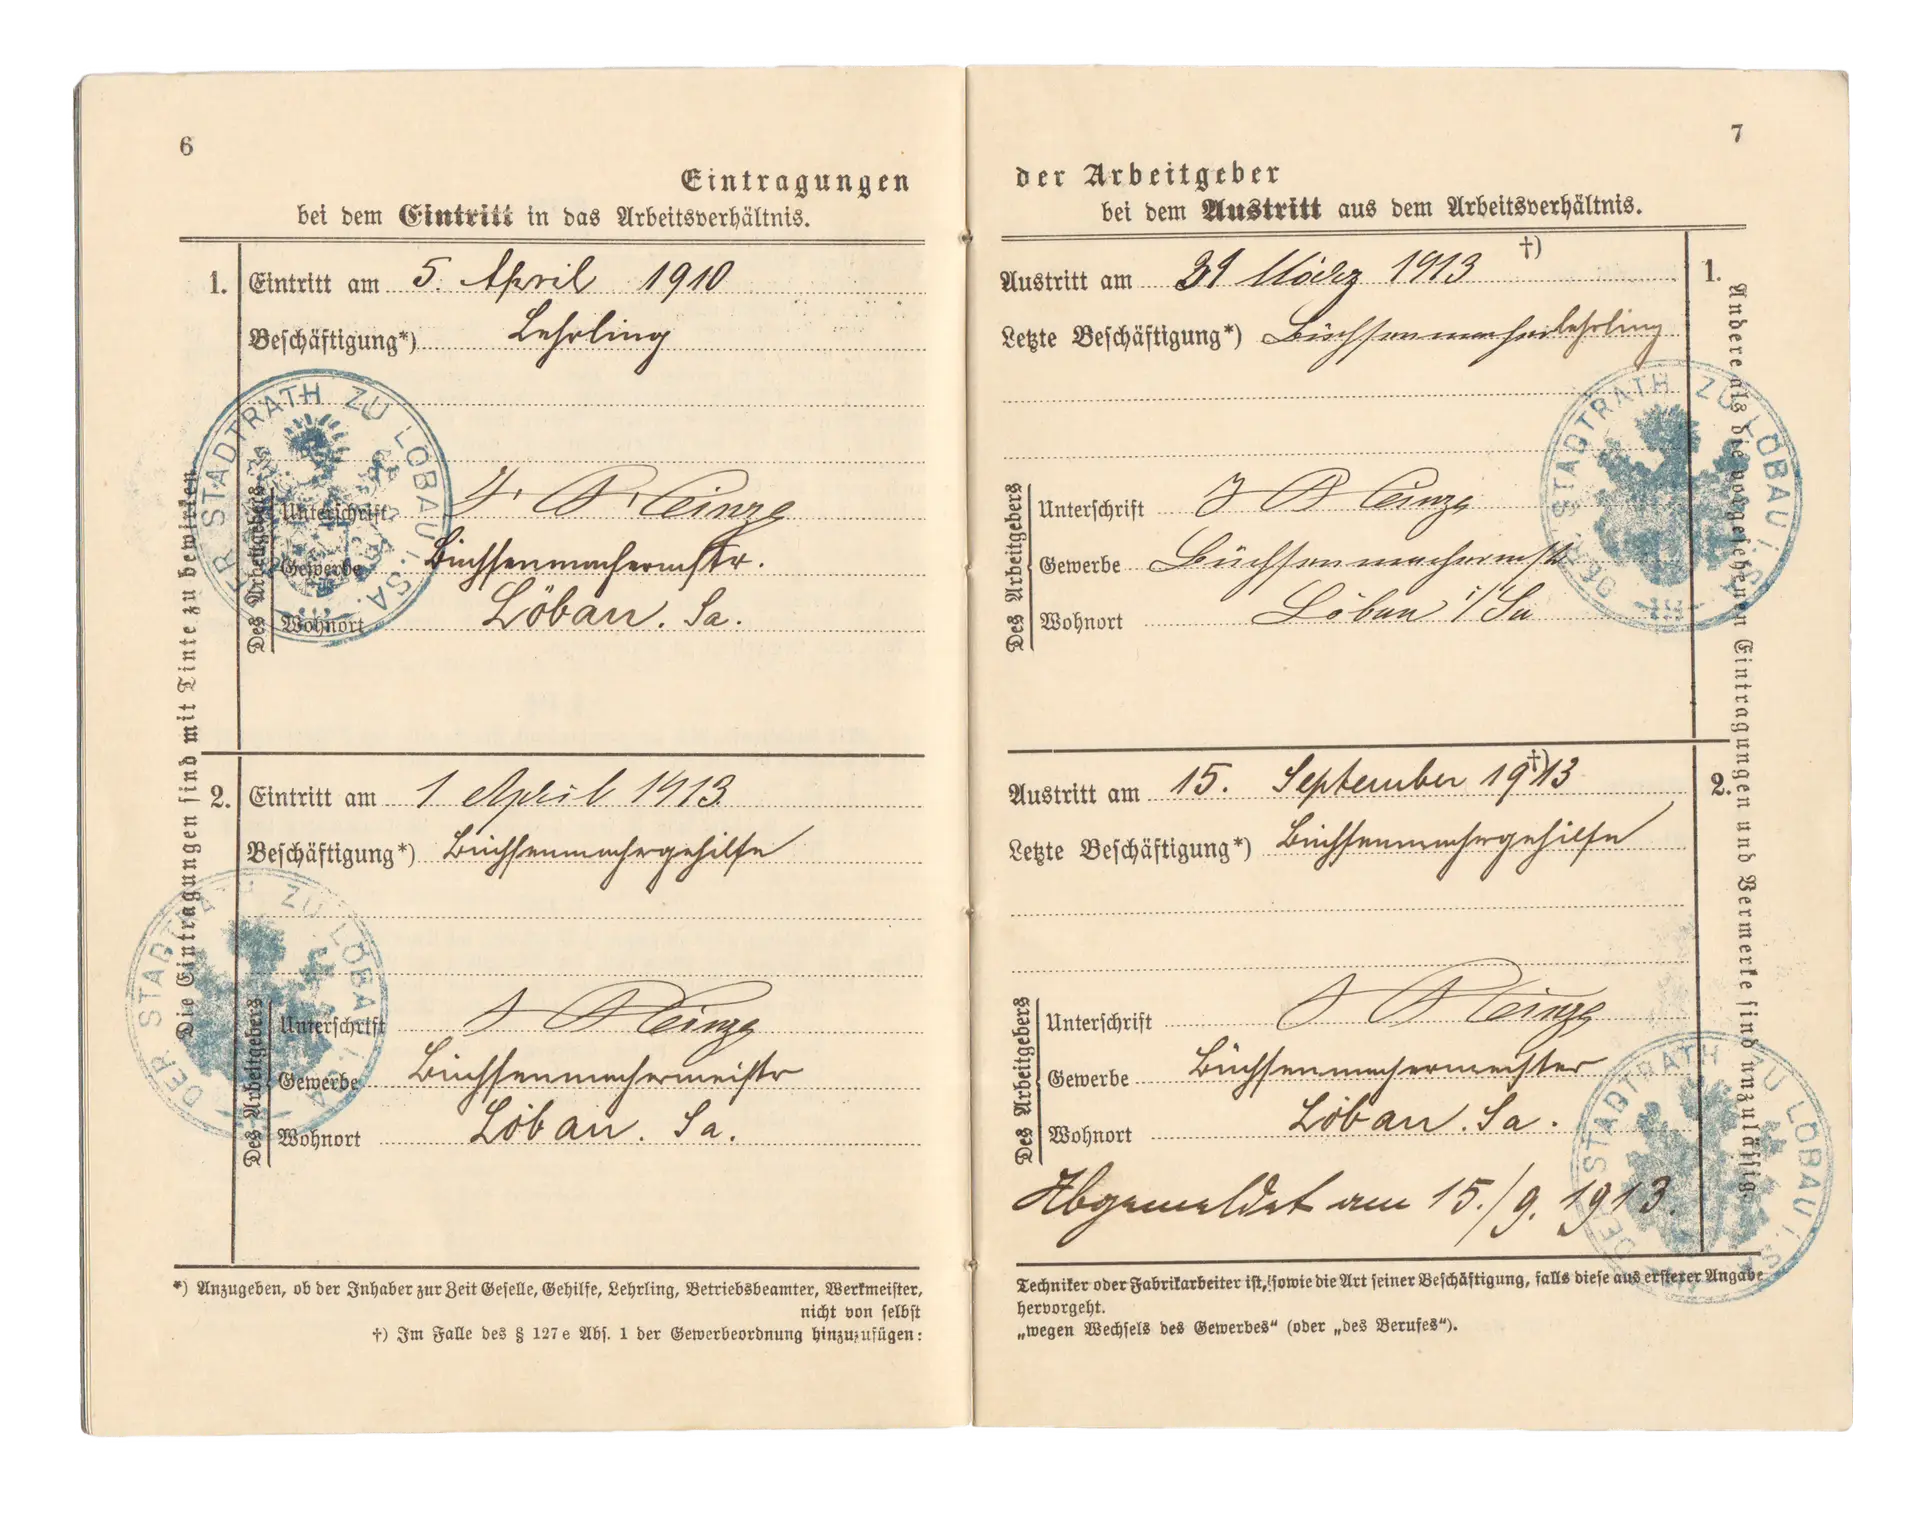 6
Eintragungen
bei dem Eintritt in das Arbeitsverhältnis.
1. Eintritt am 5. April 1910
Beschäftigung*) Lehrling
DER STADTRATH ZU LÖBAU I. SA.
Des Arbeitgebers
Unterschrift Heinze
Gewerbe Büchsenmachermstr.
Wohnort Löbau. Sa.
2. Eintritt am 1 April 1913
Beschäftigung*) Büchsenmachergehilfe
DER STADTRATH ZU LÖBAU I. SA.
Des Arbeitgebers
Unterschrift Heinze
Gewerbe Büchsenmachermeistr
Wohnort Löbau. Sa.
Die Eintragungen sind mit Tinte zu bewirken
*) Anzugeben, ob der Inhaber zur Zeit Geselle, Gehilfe, Lehrling, Betriebsbeamter, Werkmeister,
nicht von selbst
†) Im Falle des § 127e Abs. 1 der Gewerbeordnung hinzuzufügen:
7
der Arbeitgeber
bei dem Austritt aus dem Arbeitsverhältnis.
Austritt am 31 März 1913 †) 1.
Letzte Beschäftigung*) Büchsenmacherlehrling
DER STADTRATH ZU LÖBAU I. SA.
Des Arbeitgebers
Unterschrift Heinze
Gewerbe Büchsenmachermstr
Wohnort Löbau i/Sa
Austritt am 15. September 1913 †) 2.
Letzte Beschäftigung*) Büchsenmachergehilfe
Des Arbeitgebers
Unterschrift Heinze
Gewerbe Büchsenmachermeister
Wohnort Löbau. Sa.
DER STADTRATH ZU LÖBAU I. SA.
Abgemeldet am 15./9. 1913.
Andere als die vorgesehenen Eintragungen und Vermerke sind unzulässig.
Techniker oder Fabrikarbeiter ist, sowie die Art seiner Beschäftigung, falls diese aus ersterer Angabe
hervorgeht.
„wegen Wechsels des Gewerbes“ (oder „des Berufes“).